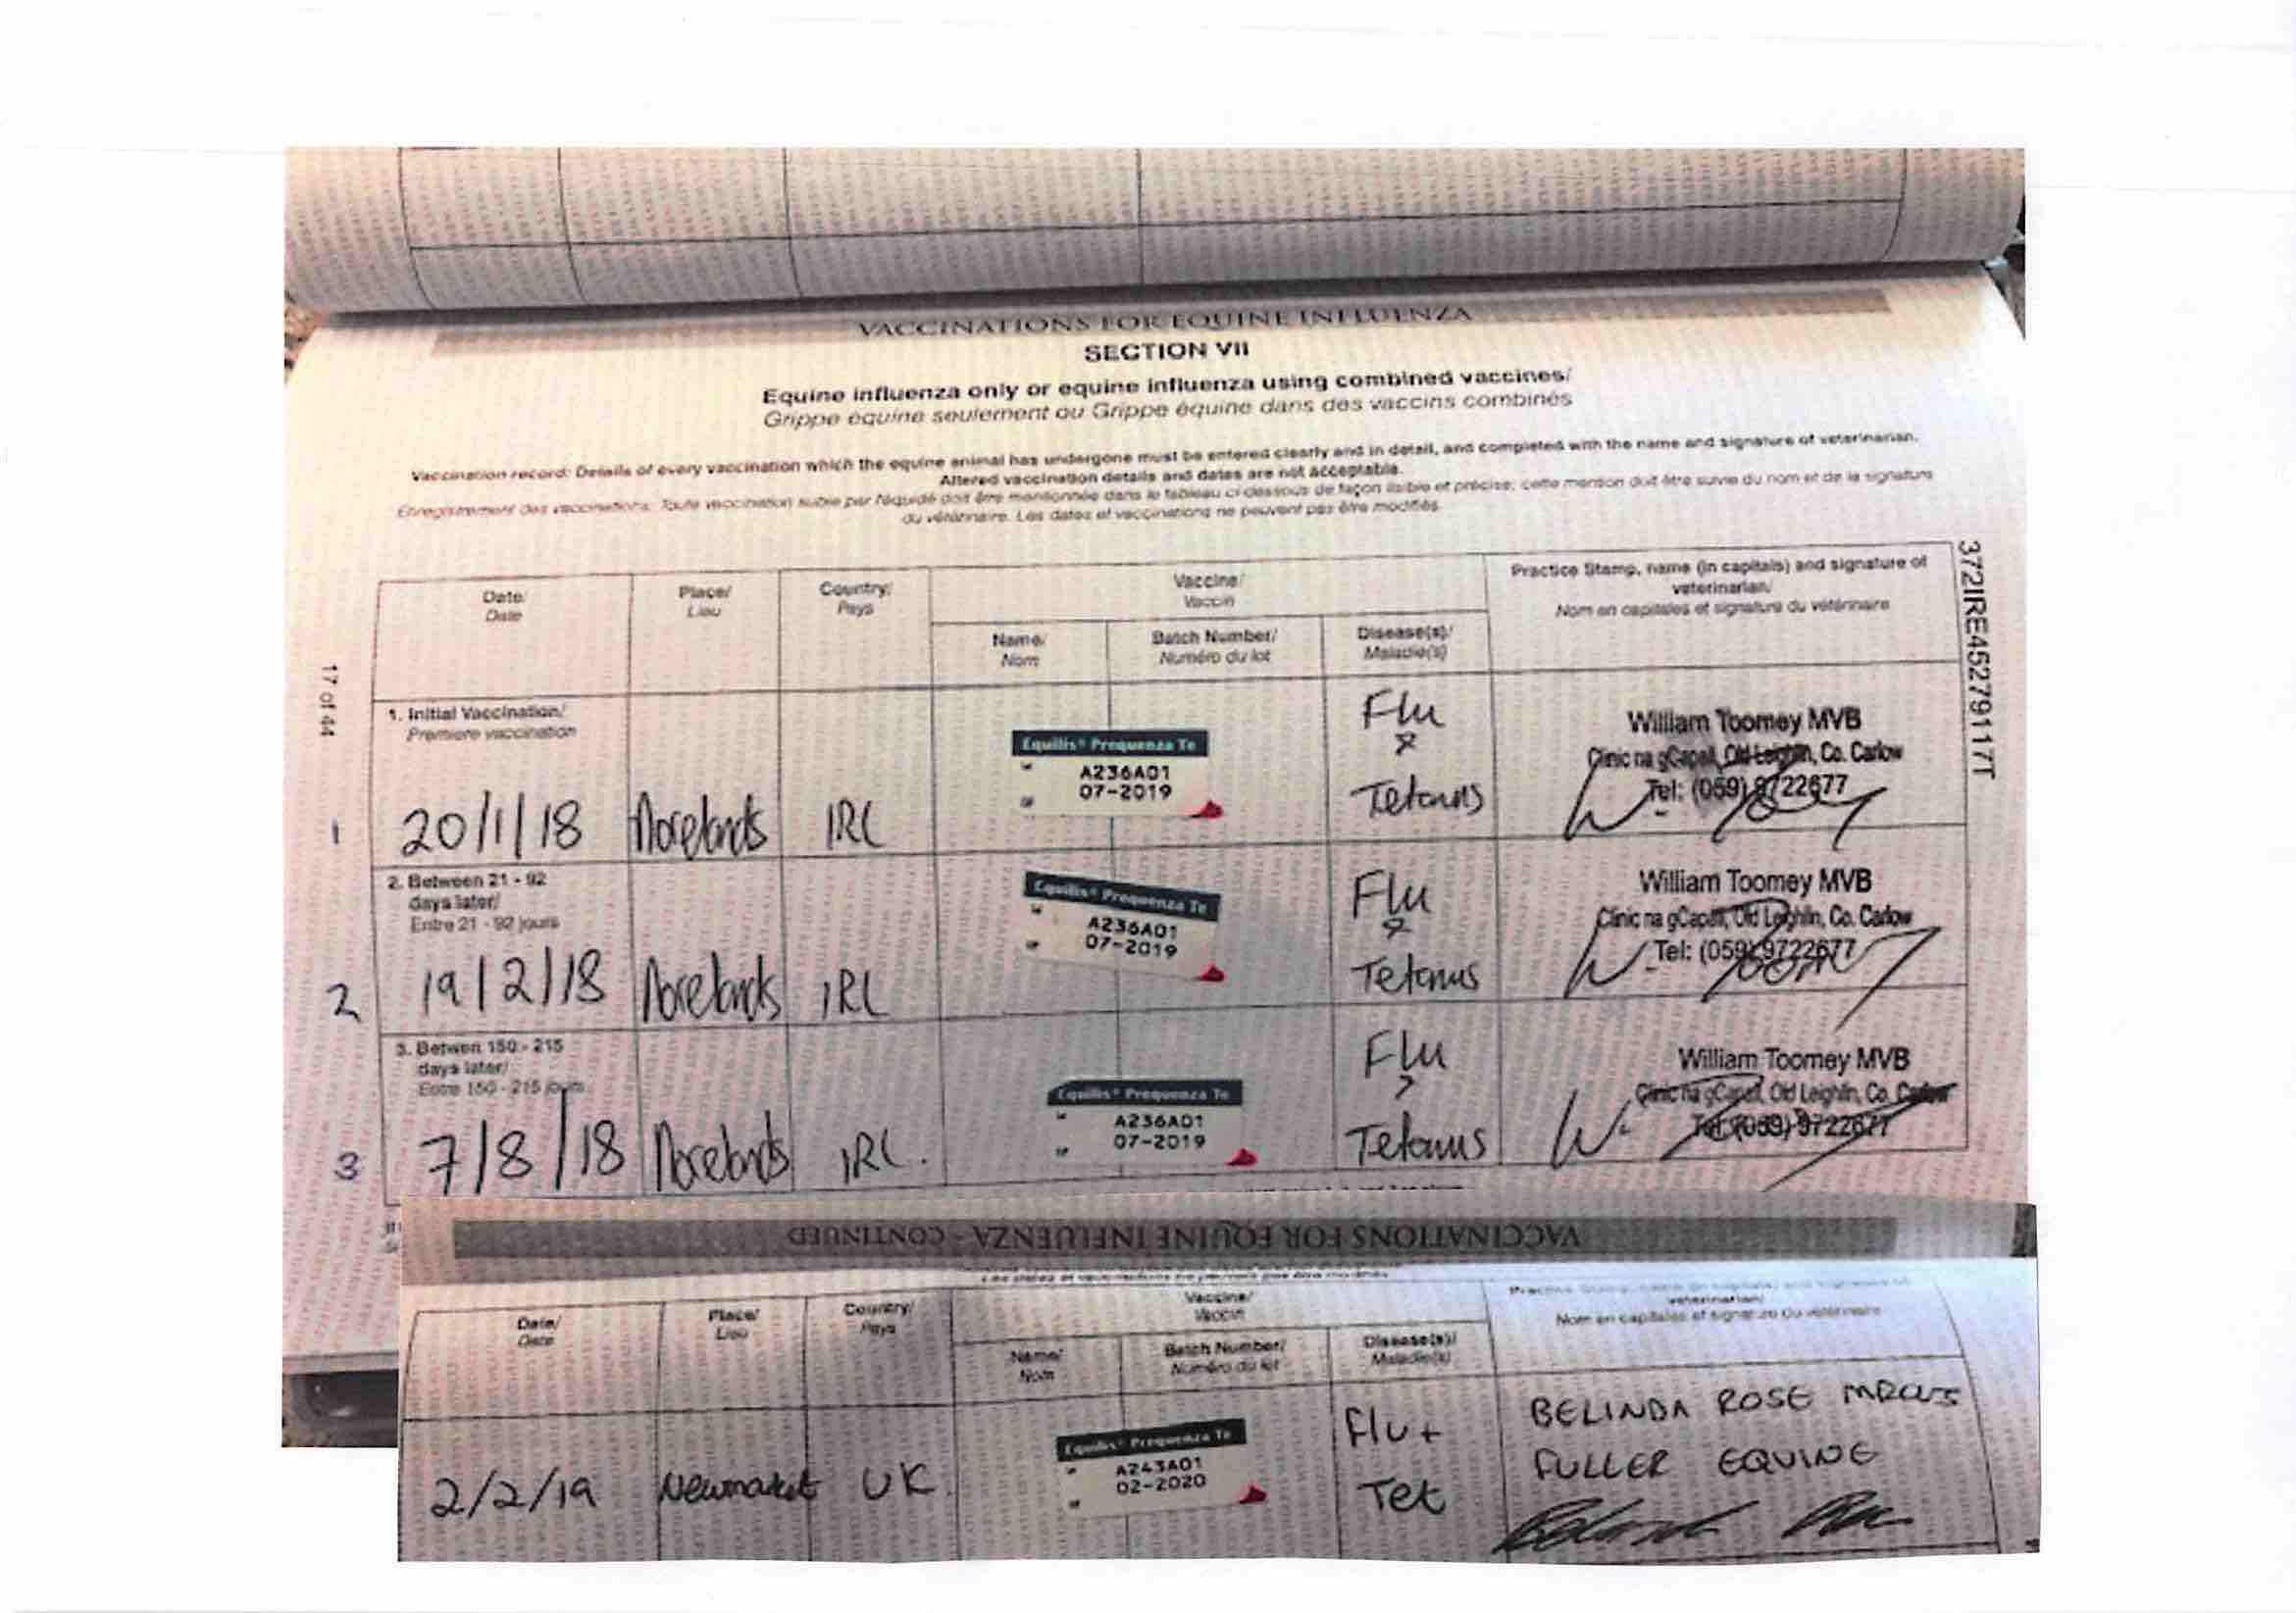 VACCINATIONS FOR EQUINE INFLUENZA
SECTION VII
Equine influenza only or equine influenza using combined vaccines/
Grippe équine seulement ou Grippe équine dans des vaccins combinés
Vaccination record: Details of every vaccination which the equine animal has undergone must be entered clearly and in detail, and completed with the name and signature of veterinarian.
Altered vaccination details and dates are not acceptable.
Enregistrement des vaccinations: Toute vaccination subie par l'équidé doit être mentionnée dans le tableau ci-dessous de façon lisible et précise; cette mention doit être suivie du nom et de la signature
du vétérinaire. Les dates et vaccinations ne peuvent pas être modifiés.
372IRE45279117T
17 of 44
Date/
Date
Place/
Lieu
Country/
Pays
Vaccine/
Vaccin
Name/
Nom
Batch Number/
Numéro du lot
Disease(s)/
Maladie(s)
Practice Stamp, name (in capitals) and signature of
veterinarian/
Nom en capitales et signature du vétérinaire
1. Initial Vaccination/
Premiere vaccination
1
20/1/18
Norelands
IRL
Equilis® Prequenza Te
A236A01
07-2019
Flu
&
Tetanus
William Toomey MVB
Clinic na gCapall, Old Leighlin, Co. Carlow
Tel: (059) 9722677
2. Between 21 - 92
days later/
Entre 21 - 92 jours
2
19/2/18
Norelands
IRL
Equilis® Prequenza Te
A236A01
07-2019
Flu
&
Tetanus
William Toomey MVB
Clinic na gCapall, Old Leighlin, Co. Carlow
Tel: (059) 9722677
3. Betwen 150 - 215
days later/
Entre 150 - 215 jours
3
7/8/18
Norelands
IRL.
Equilis® Prequenza Te
A236A01
07-2019
Flu
Tetanus
William Toomey MVB
Clinic na gCapall, Old Leighlin, Co. Carlow
Tel: (059) 9722677
VACCINATIONS FOR EQUINE INFLUENZA - CONTINUED
Date/
Date
Place/
Lieu
Country/
Pays
Vaccine/
Vaccin
Name/
Nom
Batch Number/
Numéro du lot
Disease(s)/
Maladie(s)
veterinarian/
Nom en capitales et signature du vétérinaire
2/2/19
Newmarket
UK
Equilis® Prequenza Te
A243A01
02-2020
Flu +
Tet
BELINDA ROSE MRCVS
FULLER EQUINE